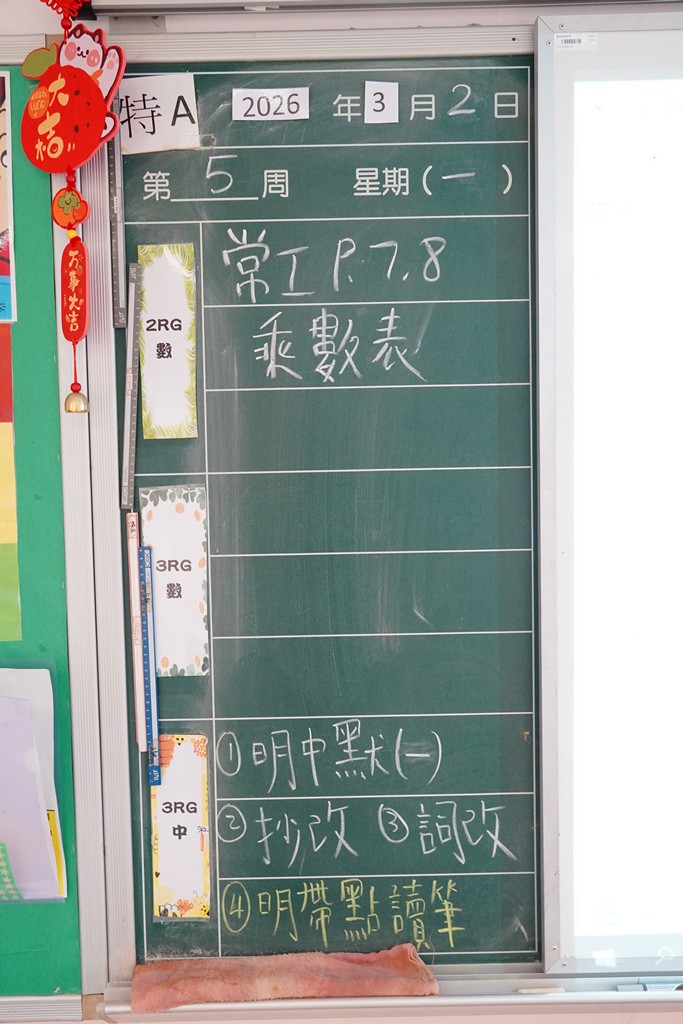 大吉
万事大吉
特A
2026年3月2日
第5周 星期(一)
2RG
數
常工 P.7,8
乘數表
3RG
數
3RG
中
①明中默(一)
②抄改 ③詞改
④明帶點讀筆